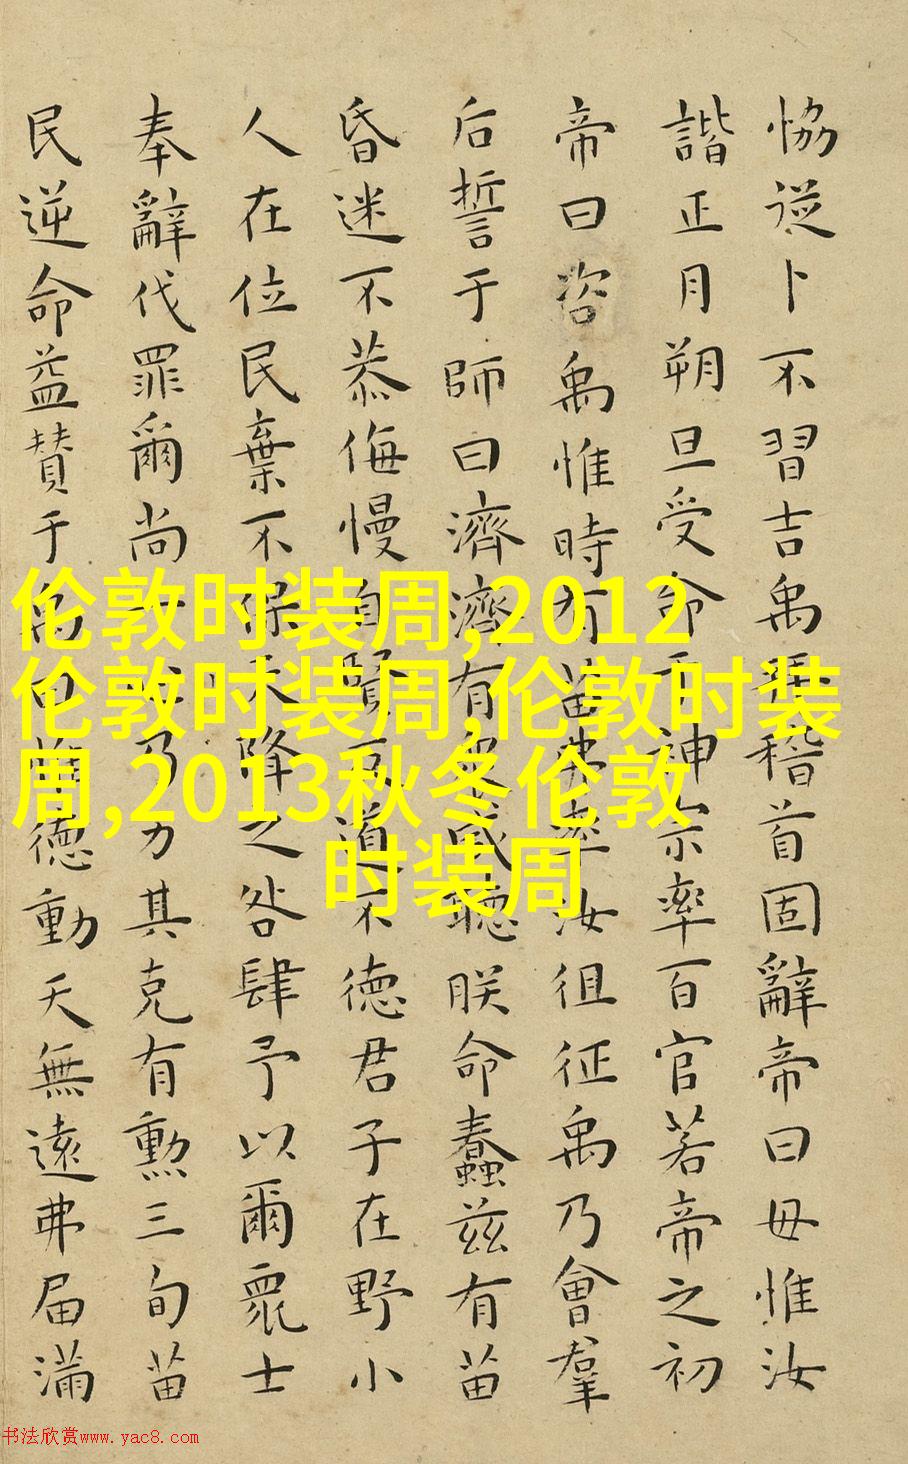 恊從卜不習吉禹拜稽首固辭帝曰毋惟汝
諧正月朔旦受命于神宗率百官若帝之初
帝曰咨禹惟時有苗弗率汝徂征禹乃會羣
后誓于師曰濟濟有衆咸聽朕命蠢兹有苗
昏迷不恭侮慢自賢反道不德君子在野小
人在位民棄不保天降之咎肆予以爾衆士
奉辭伐罪爾尚一心乃力其克有勲三旬苗
民逆命益贊于禹曰惟德動天無遠弗届滿
伦敦时装周,2012
伦敦时装周,伦敦时装
周,2013秋冬伦敦
时装周
书法欣赏www.yac8.com